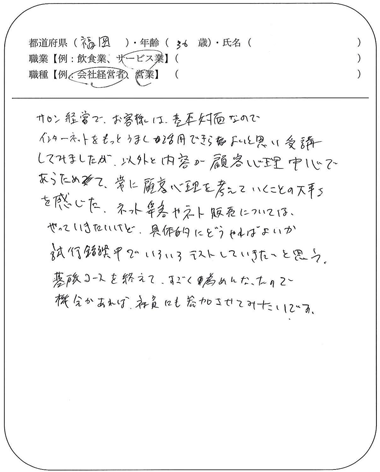 都道府県（福岡　）・年齢（36 歳）・氏名（　　　）
職業【例：飲食業、サービス業】（　　　）
職種【例：会社経営者、営業】（　　　）
サロン経営で、お客様は、基本対面なので
インターネットをもっとうまく活用できらばよいと思い受講
してみましたが、以外と内容が顧客心理中心で
あらためて、常に顧客心理を考えていくことの大事さ
を感じた。ネット集客やネット販売については、
やっていきたいけど、具体的にどうやればよいか
試行錯誤中でいろいろテストしていきたいと思う。
基礎コースを終えて、すごく為になったので
機会があれば、社員にも参加させてみたいです。